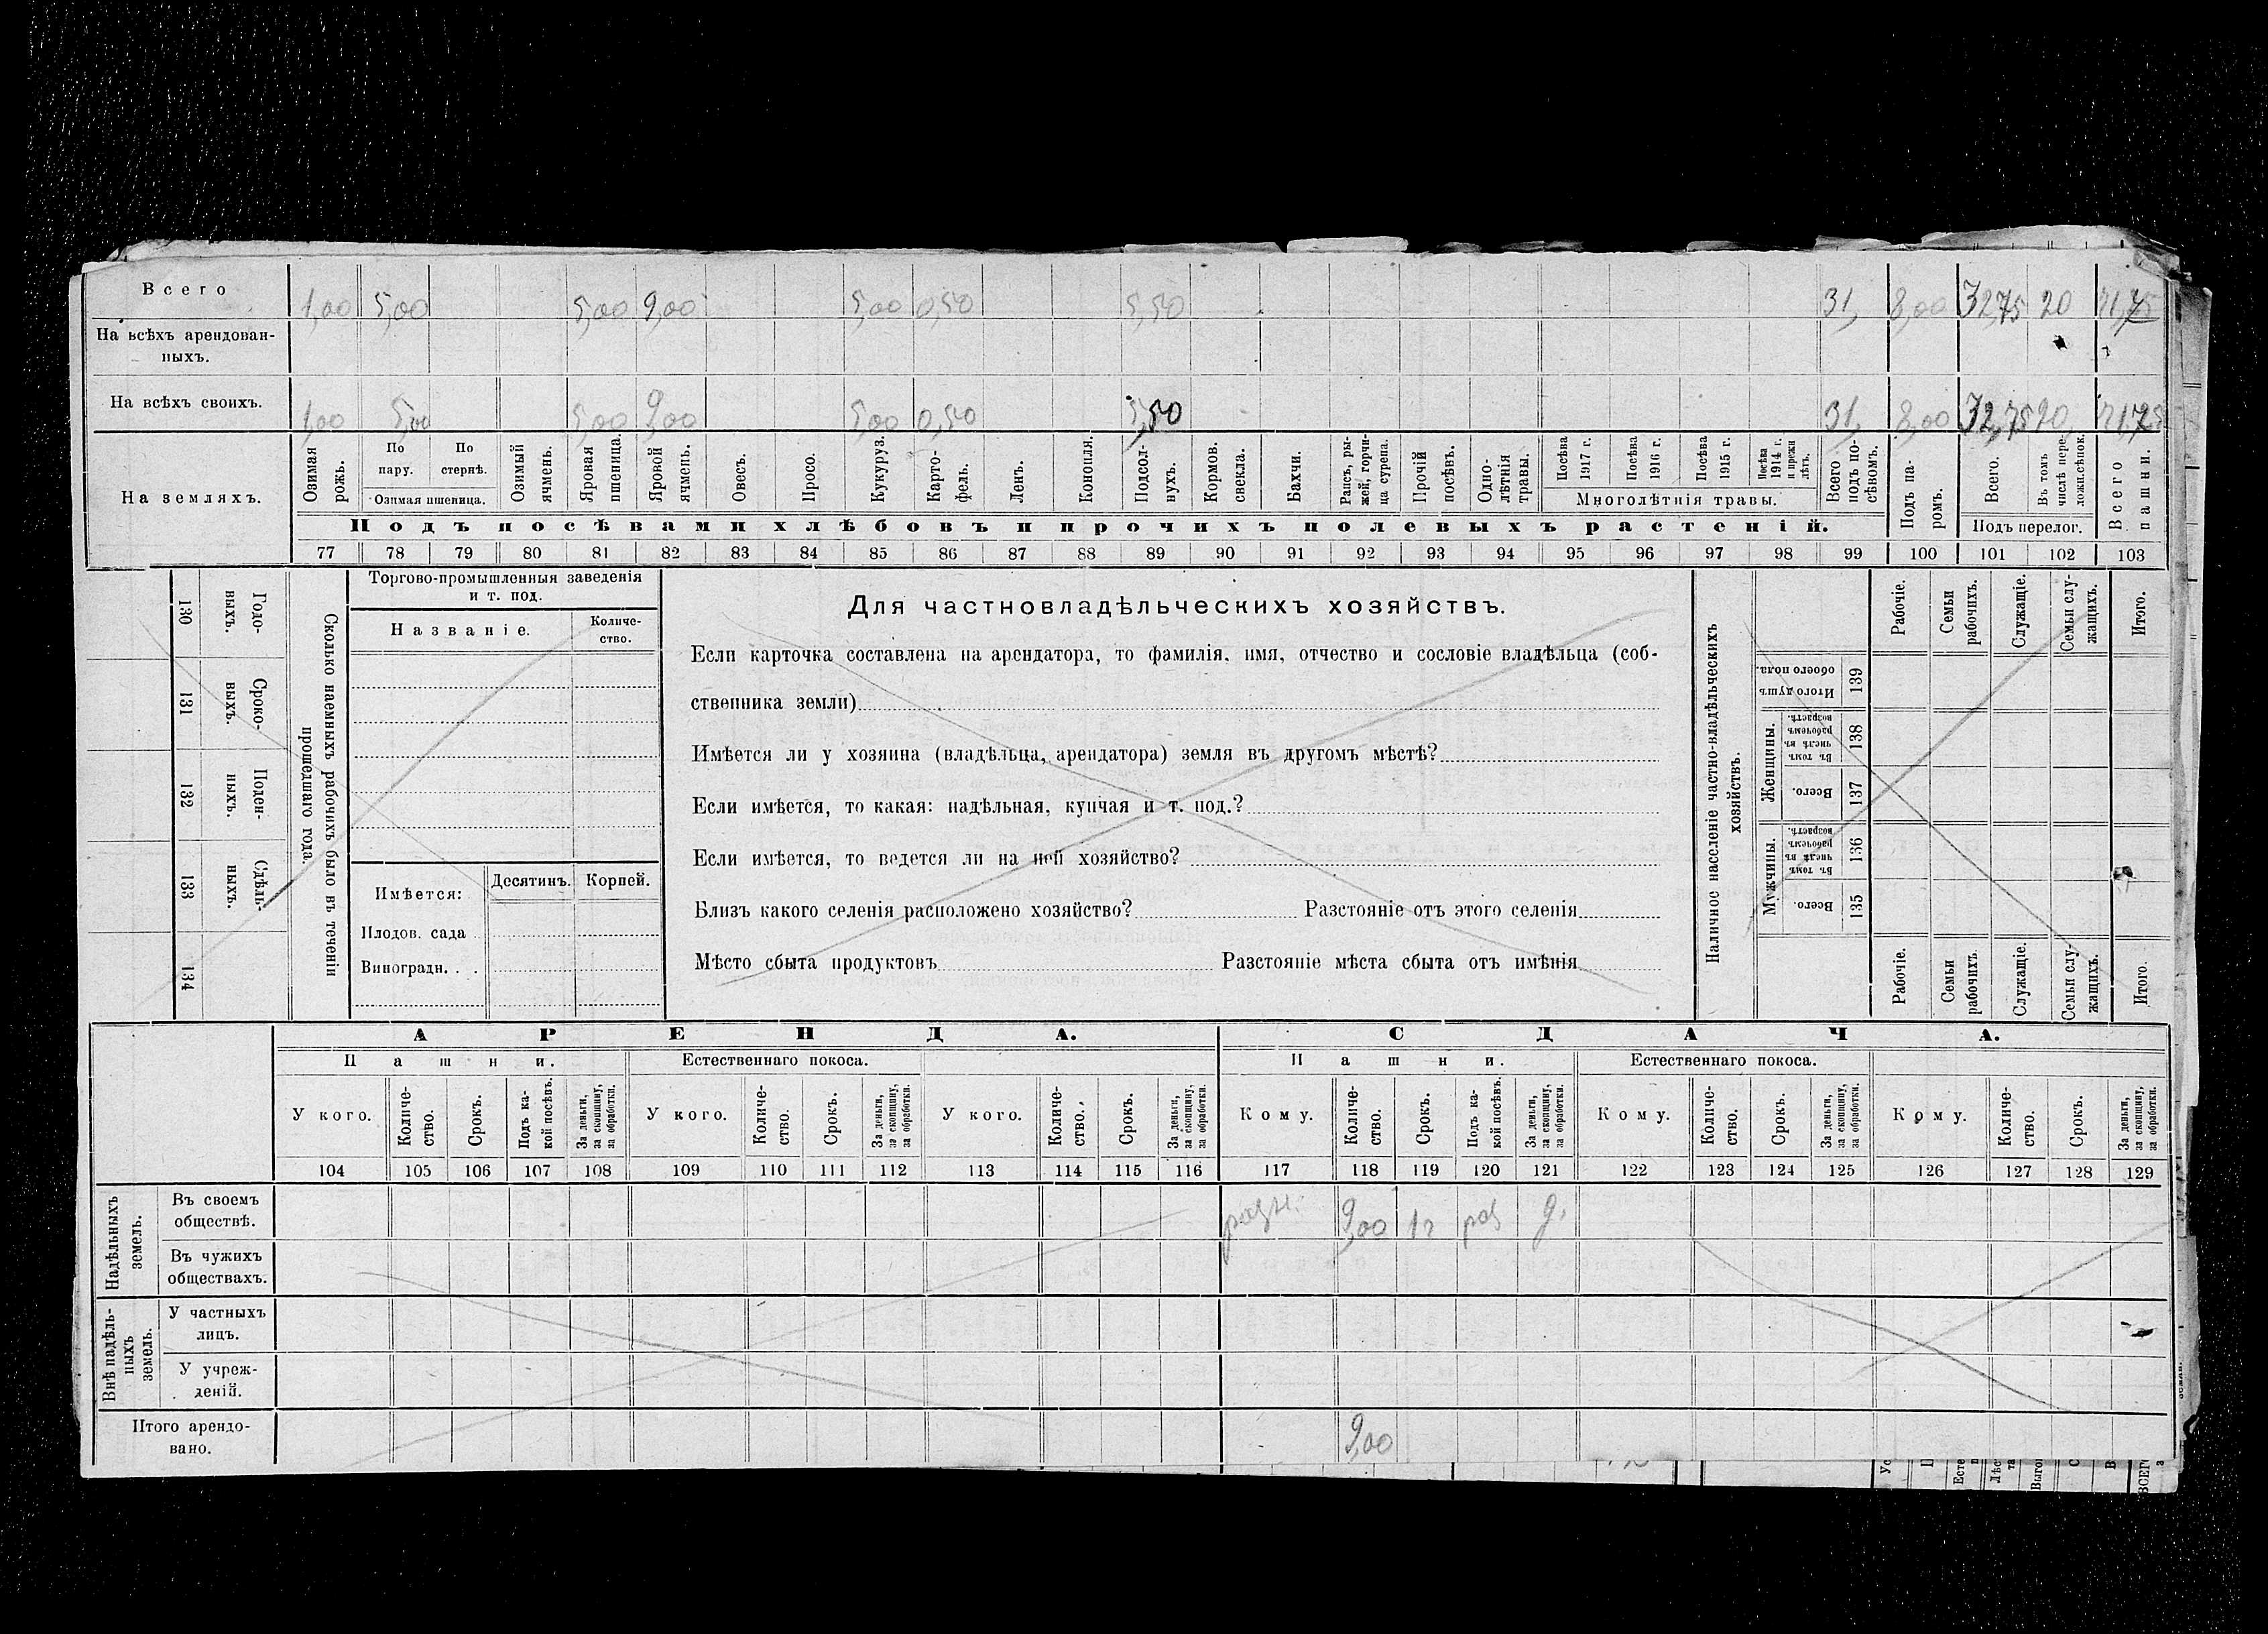 Всего 1,00 5,00 5,00 9,00 5,00 0,50 5,50 31, 8,00 32,75 20 71,75
На всѣхъ арендован-
ныхъ.
На всѣхъ своихъ. 1,00 5,00 5,00 9,00 5,00 0,50 5,50 31, 8,00 32,75 20, 71,75
На земляхъ.
Озимая рожь.
По пару.
По стернѣ.
Озимая пшеница.
Озимый ячмень.
Яровая пшеница.
Яровой ячмень.
Овесъ.
Просо.
Кукуруз.
Карто-
фель.
Ленъ.
Конопля.
Подсол-
нухъ.
Кормов. свекла.
Бахчи.
Рапсъ, ры-
жей, горчи-
ца сурепа.
Прочій посѣвъ.
Одно-
лѣтнія травы.
Посѣва 1917 г.
Посѣва 1916 г.
Посѣва 1915 г.
Посѣва 1914 г. и прежн лѣтъ.
Многолѣтнія травы.
Всего подъ по-
сѣвомъ.
Подъ па-
ромъ.
Всего.
Въ томъ числѣ пере-
ложн.сѣнок.
Подъ перелог.
Всего пашни.
Подъ посѣвами хлѣбовъ и прочихъ полевыхъ растеній.
77 78 79 80 81 82 83 84 85 86 87 88 89 90 91 92 93 94 95 96 97 98 99 100 101 102 103
130 Годо-
выхъ.
131 Сроко-
выхъ.
132 Поден-
ныхъ.
133 Сдѣль-
ныхъ.
134
Сколько наемныхъ рабочихъ было въ теченіи
прошедшаго года.
Торгово-промышленныя заведенія
и т. под.
Названіе.
Количе-
ство.
Имѣется:
Десятинъ.
Корней.
Плодов. сада
Виноградн. . .
Для частновладѣльческихъ хозяйствъ.
Если карточка составлена на арендатора, то фамилія, имя, отчество и сословіе владѣльца (соб-
ственника земли)
Имѣется ли у хозяина (владѣльца, арендатора) земля въ другомъ мѣстѣ?
Если имѣется, то какая: надѣльная, купчая и т. под.?
Если имѣется, то ведется ли на ней хозяйство?
Близъ какого селенія расположено хозяйство? Разстояніе отъ этого селенія
Мѣсто сбыта продуктовъ Разстояніе мѣста сбыта отъ имѣнія
Наличное населеніе частно-владѣльческихъ
хозяйствъ.
Рабочіе.
Семьи рабочихъ.
Служащіе.
Семьи слу-
жащихъ.
Итого.
Итого душ обоего пола. 139
Женщины.
Въ томъ числѣ въ рабочемъ возрастѣ. 138
Всего. 137
Мужчины.
Въ томъ числѣ въ рабочемъ возрастѣ. 136
Всего. 135
Рабочіе.
Семьи рабочихъ.
Служащіе.
Семьи слу-
жащихъ.
Итого.
АРЕНДА.
СДАЧА.
Пашни.
Естественнаго покоса.
Пашни.
Естественнаго покоса.
У кого.
Количе-
ство.
Срокъ.
Подъ ка-
кой посѣвъ.
За деньги, за скопщину, за обработки.
У кого.
Количе-
ство.
Срокъ.
За деньги, за скопщину, за обработки.
У кого.
Количе-
ство.
Срокъ.
За деньги, за скопщину, за обработки.
Кому.
Количе-
ство.
Срокъ.
Подъ ка-
кой посѣвъ.
За деньги, за скопщину, за обработки.
Кому.
Количе-
ство.
Срокъ.
За деньги, за скопщину, за обработки.
Кому.
Количе-
ство.
Срокъ.
За деньги, за скопщину, за обработки.
104 105 106 107 108 109 110 111 112 113 114 115 116 117 118 119 120 121 122 123 124 125 126 127 128 129
Надѣльныхъ
земель.
Въ своемъ
обществѣ.
разн. 9,00 1г раз д.
Въ чужихъ
обществахъ.
Внѣ надѣль-
ныхъ
земель.
У частныхъ
лицъ.
У учреж-
деній.
Итого арендо-
вано.
9,00